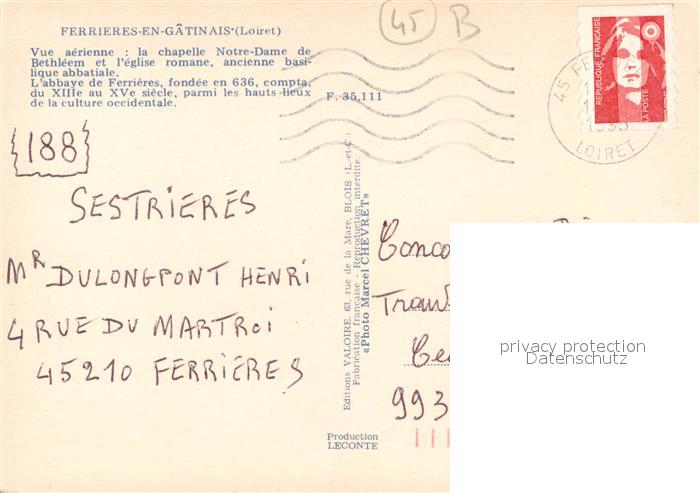 FERRIERES-EN-GÂTINAIS (Loiret)
Vue aérienne : la chapelle Notre-Dame de
Bethléem et l'église romane, ancienne basi-
lique abbatiale.
L'abbaye de Ferrières, fondée en 636, compta,
du XIIIe au XVe siècle, parmi les hauts lieux
de la culture occidentale.
45 B
F. 35.111
RÉPUBLIQUE FRANÇAISE
LA POSTE
45 FE
LOIRET
188
SESTRIERES
Mr DULONGPONT HENRI
4 RUE DU MARTROI
45210 FERRIERES
Editions VALOIRE, 63, rue de la Mare, BLOIS (L.-et-C.)
Fabrication française - Reproduction interdite.
«Photo Marcel CHEVRET»
Production
LECONTE
Conco
Ce
993
privacy protection
Datenschutz